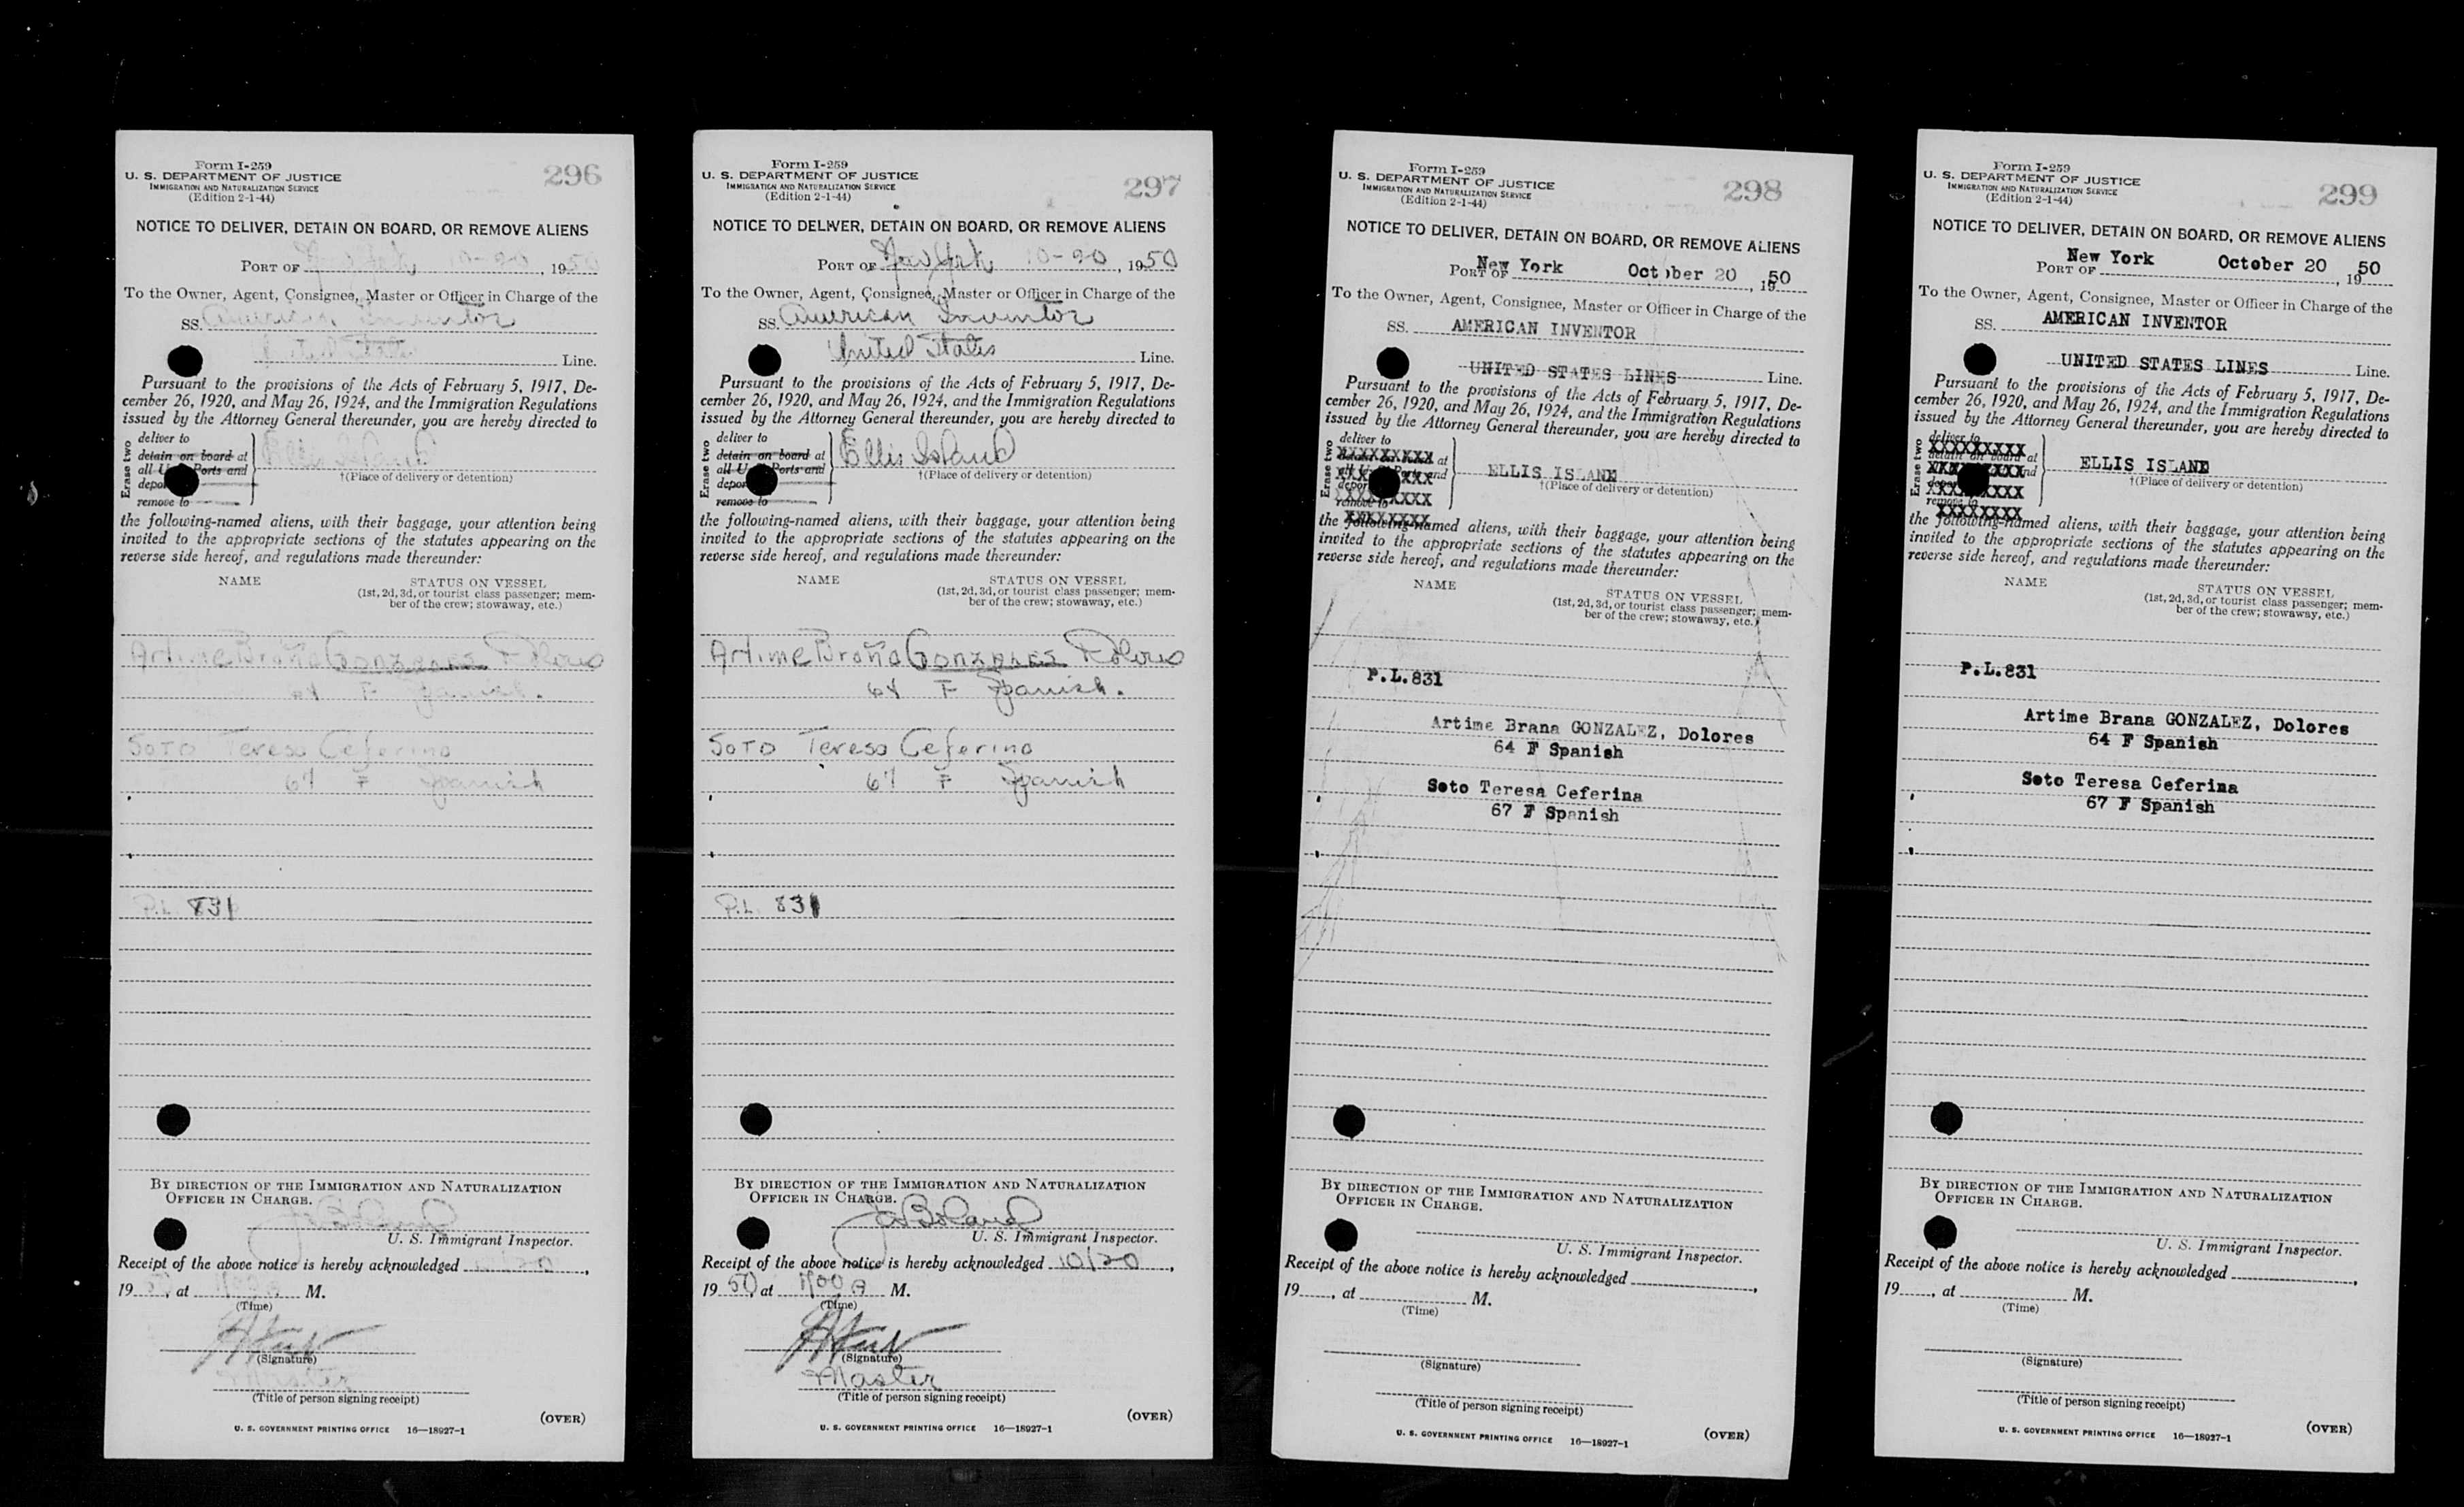 Form I-259
U. S. DEPARTMENT OF JUSTICE
IMMIGRATION AND NATURALIZATION SERVICE
(Edition 2-1-44)
296
NOTICE TO DELIVER, DETAIN ON BOARD, OR REMOVE ALIENS
PORT OF New York 10-20, 1950
To the Owner, Agent, Consignee, Master or Officer in Charge of the
SS. American Inventor
United States Line.
Pursuant to the provisions of the Acts of February 5, 1917, De-
cember 26, 1920, and May 26, 1924, and the Immigration Regulations
issued by the Attorney General thereunder, you are hereby directed to
Erase two
deliver to
detain on board at
all U Ports and
depor
remove to
Ellis Island
†(Place of delivery or detention)
the following-named aliens, with their baggage, your attention being
invited to the appropriate sections of the statutes appearing on the
reverse side hereof, and regulations made thereunder:
NAME STATUS ON VESSEL
(1st, 2d, 3d, or tourist class passenger; mem-
ber of the crew; stowaway, etc.)
Artime Braña Gonzales Dolores
64 F Spanish.
Soto Teresa Ceferina
67 F Spanish
P.L. 831
BY DIRECTION OF THE IMMIGRATION AND NATURALIZATION
OFFICER IN CHARGE.
U. S. Immigrant Inspector.
Receipt of the above notice is hereby acknowledged 10/20,
1950, at M.
(Time)
(Signature)
Master
(Title of person signing receipt)
(OVER)
U. S. GOVERNMENT PRINTING OFFICE 16—18927-1
Form I-259
U. S. DEPARTMENT OF JUSTICE
IMMIGRATION AND NATURALIZATION SERVICE
(Edition 2-1-44)
297
NOTICE TO DELIVER, DETAIN ON BOARD, OR REMOVE ALIENS
PORT OF New York 10-20, 1950
To the Owner, Agent, Consignee, Master or Officer in Charge of the
SS. American Inventor
United States Line.
Pursuant to the provisions of the Acts of February 5, 1917, De-
cember 26, 1920, and May 26, 1924, and the Immigration Regulations
issued by the Attorney General thereunder, you are hereby directed to
Erase two
deliver to
detain on board at
all U Ports and
depor
remove to
Ellis Island
†(Place of delivery or detention)
the following-named aliens, with their baggage, your attention being
invited to the appropriate sections of the statutes appearing on the
reverse side hereof, and regulations made thereunder:
NAME STATUS ON VESSEL
(1st, 2d, 3d, or tourist class passenger; mem-
ber of the crew; stowaway, etc.)
Artime Braña Gonzales Dolores
64 F Spanish.
Soto Teresa Ceferina
67 F Spanish
P.L. 831
BY DIRECTION OF THE IMMIGRATION AND NATURALIZATION
OFFICER IN CHARGE.
U. S. Immigrant Inspector.
Receipt of the above notice is hereby acknowledged 10/20,
1950, at M.
(Time)
(Signature)
Master
(Title of person signing receipt)
(OVER)
U. S. GOVERNMENT PRINTING OFFICE 16—18927-1
Form I-259
U. S. DEPARTMENT OF JUSTICE
IMMIGRATION AND NATURALIZATION SERVICE
(Edition 2-1-44)
298
NOTICE TO DELIVER, DETAIN ON BOARD, OR REMOVE ALIENS
PORT OF New York October 20, 1950
To the Owner, Agent, Consignee, Master or Officer in Charge of the
SS. AMERICAN INVENTOR
UNITED STATES LINES Line.
Pursuant to the provisions of the Acts of February 5, 1917, De-
cember 26, 1920, and May 26, 1924, and the Immigration Regulations
issued by the Attorney General thereunder, you are hereby directed to
Erase two
deliver to
detain on board at
all U Ports and
depor
remove to
ELLIS ISLAND
†(Place of delivery or detention)
the following-named aliens, with their baggage, your attention being
invited to the appropriate sections of the statutes appearing on the
reverse side hereof, and regulations made thereunder:
NAME STATUS ON VESSEL
(1st, 2d, 3d, or tourist class passenger; mem-
ber of the crew; stowaway, etc.)
P.L.831
Artime Brana GONZALEZ, Dolores
64 F Spanish
Soto Teresa Ceferina
67 F Spanish
BY DIRECTION OF THE IMMIGRATION AND NATURALIZATION
OFFICER IN CHARGE.
U. S. Immigrant Inspector.
Receipt of the above notice is hereby acknowledged ,
19 , at M.
(Time)
(Signature)
(Title of person signing receipt)
(OVER)
U. S. GOVERNMENT PRINTING OFFICE 16—18927-1
Form I-259
U. S. DEPARTMENT OF JUSTICE
IMMIGRATION AND NATURALIZATION SERVICE
(Edition 2-1-44)
299
NOTICE TO DELIVER, DETAIN ON BOARD, OR REMOVE ALIENS
PORT OF New York October 20, 1950
To the Owner, Agent, Consignee, Master or Officer in Charge of the
SS. AMERICAN INVENTOR
UNITED STATES LINES Line.
Pursuant to the provisions of the Acts of February 5, 1917, De-
cember 26, 1920, and May 26, 1924, and the Immigration Regulations
issued by the Attorney General thereunder, you are hereby directed to
Erase two
deliver to
detain on board at
nd
remove to
ELLIS ISLAND
†(Place of delivery or detention)
the following-named aliens, with their baggage, your attention being
invited to the appropriate sections of the statutes appearing on the
reverse side hereof, and regulations made thereunder:
NAME STATUS ON VESSEL
(1st, 2d, 3d, or tourist class passenger; mem-
ber of the crew; stowaway, etc.)
P.L.831
Artime Brana GONZALEZ, Dolores
64 F Spanish
Soto Teresa Ceferina
67 F Spanish
BY DIRECTION OF THE IMMIGRATION AND NATURALIZATION
OFFICER IN CHARGE.
U. S. Immigrant Inspector.
Receipt of the above notice is hereby acknowledged ,
19 , at M.
(Time)
(Signature)
(Title of person signing receipt)
(OVER)
U. S. GOVERNMENT PRINTING OFFICE 16—18927-1